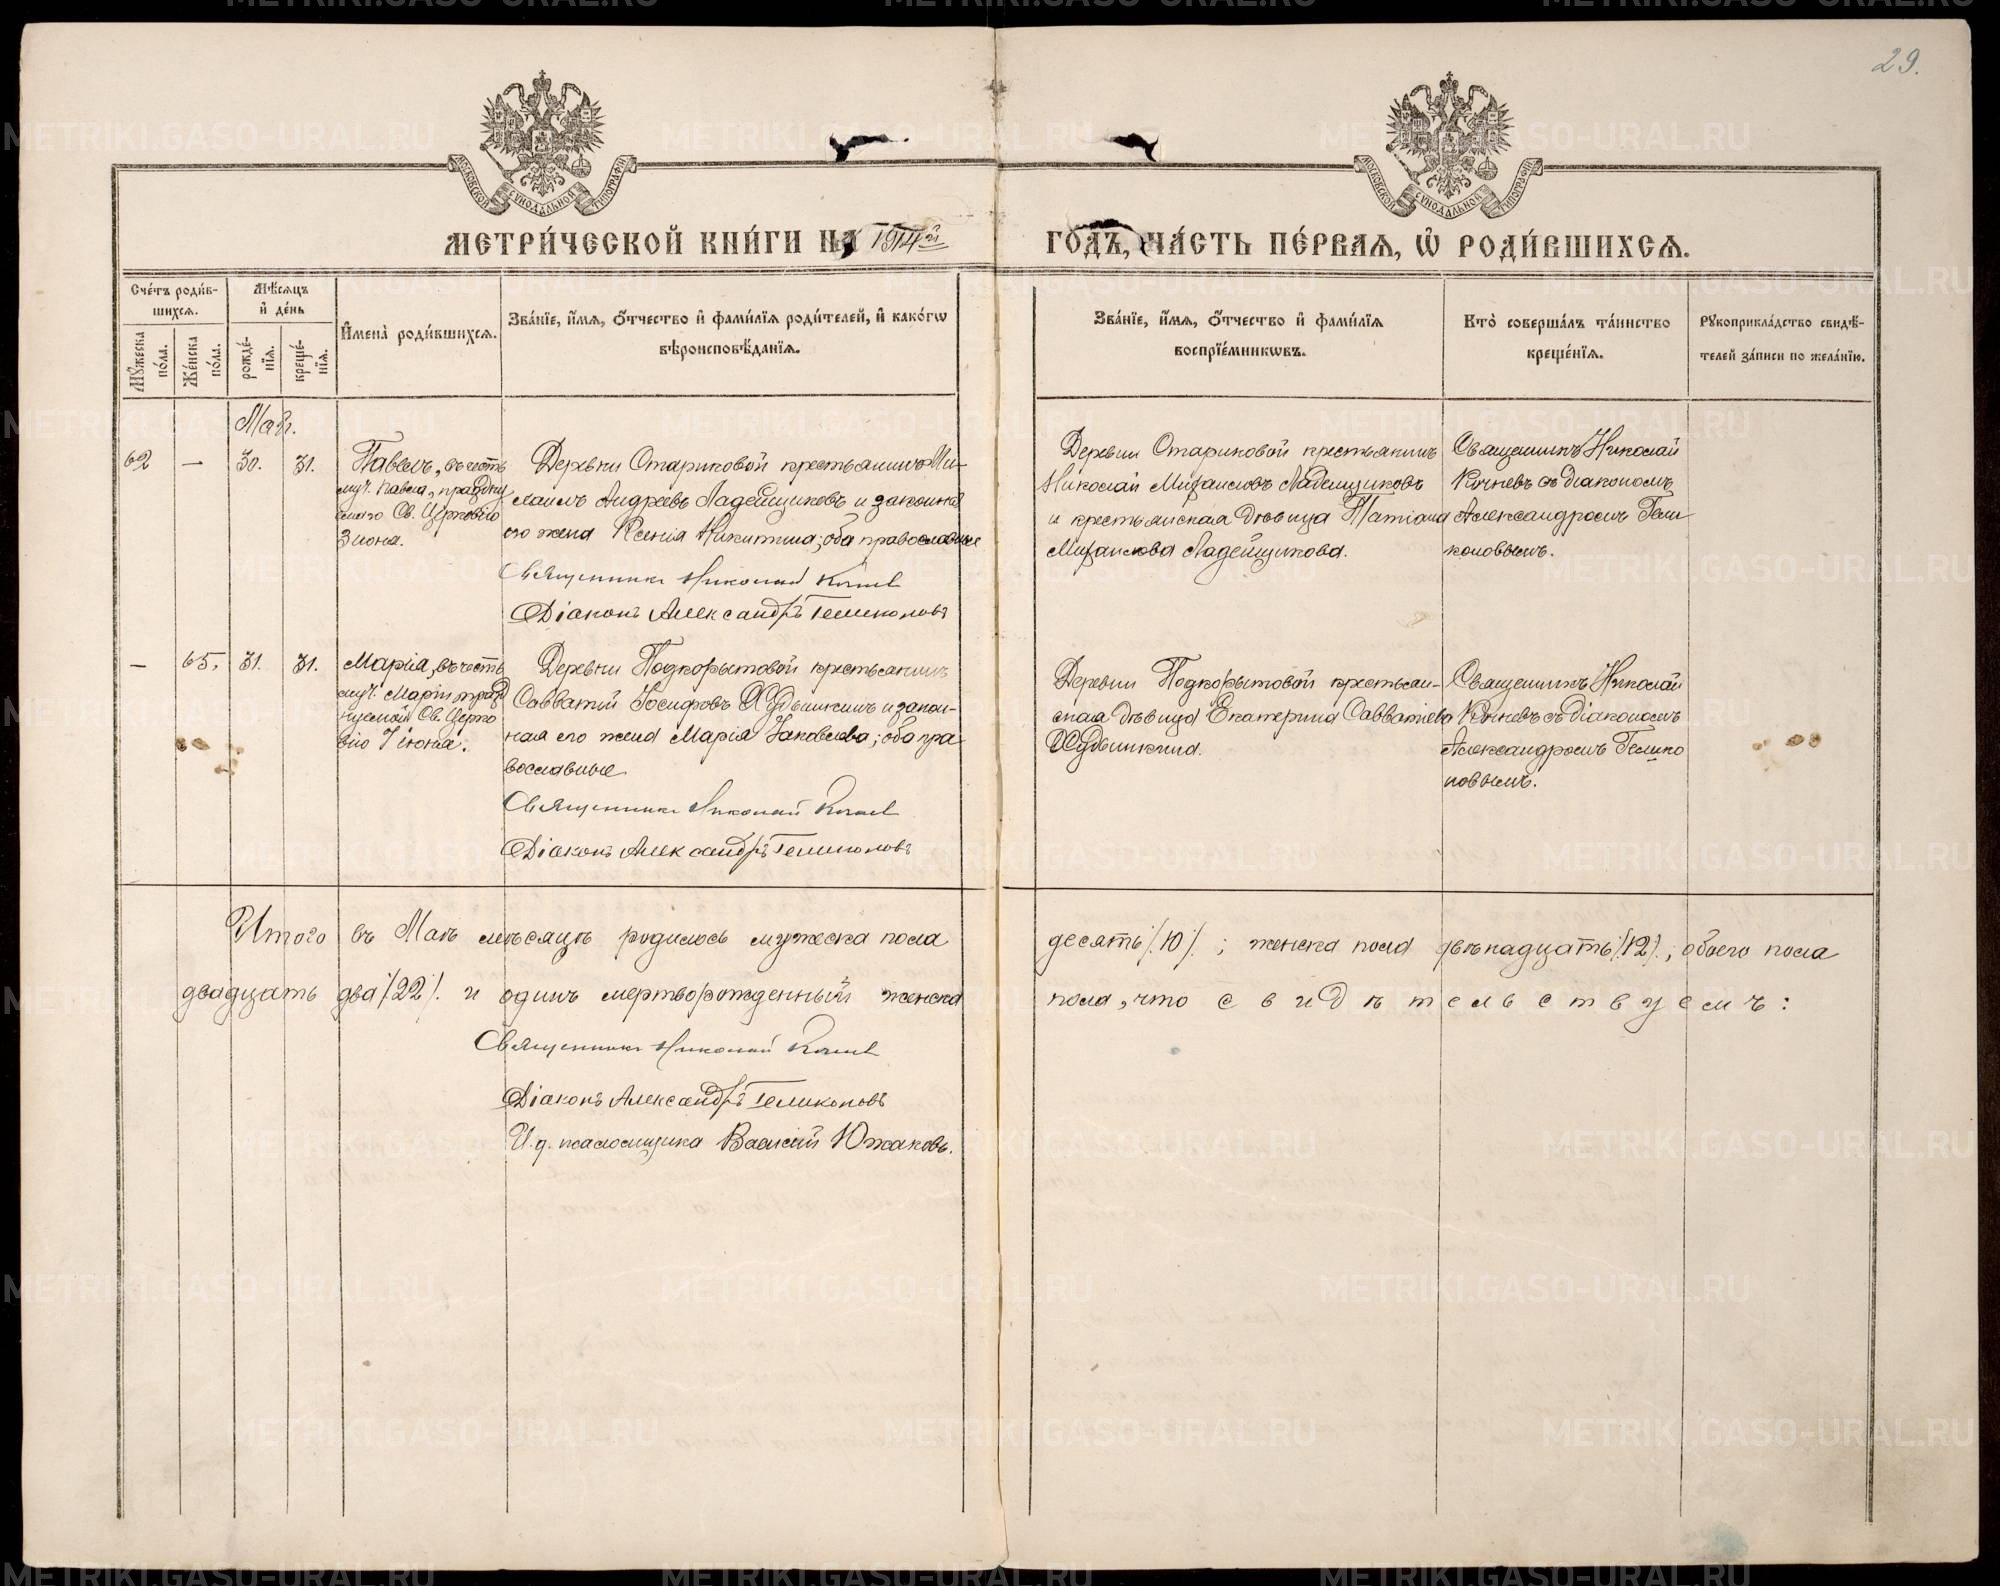 29.
МОСКОВСКОЙ СѴНОДАЛЬНОЙ ТИПОГРАФІИ
МОСКОВСКОЙ СѴНОДАЛЬНОЙ ТИПОГРАФІИ
МЕТРИ́ЧЕСКОЙ КНИ́ГИ НА 1914й ГОДЪ, ЧА́СТЬ ПЕ́РВАѦ, Ѡ҆ РОДИ́ВШИХСѦ.
Сче́тъ роди́в-
шихсѧ.
Мꙋ́жеска
по́ла.
Же́нска
по́ла.
Мѣ́сѧцъ
и҆ де́нь
рожде́-
нїѧ.
креще́-
нїѧ.
И҆мена̀ роди́вшихсѧ.
Зва́нїе, и҆́мѧ, ѻ҆́тчество и҆ фами́лїѧ роди́телей, и҆ како́гѡ
вѣроисповѣ́данїѧ.
Зва́нїе, и҆́мѧ, ѻ҆́тчество и҆ фами́лїѧ
воспрїе́мникѡвъ.
Кто̀ соверша́лъ та́инство
креще́нїѧ.
Рꙋкоприкла́дство свидѣ́-
телей за́писи по жела́нїю.
Май.
62 — 30. 31.
Павелъ, въ честь
муч. Павла, праздну
емаго Св. Церковію
3 июня.
Деревни Стариковой крестьянинъ Ми-
хаилъ Андреевъ Ладейщиковъ и законная
его жена Ксенія Никитина; оба православные
Священникъ Николай
Діаконъ Александръ Геликоновъ
Деревни Стариковой крестьянинъ
Николай Михаиловъ Ладейщиковъ
и крестьянская дѣвица Татіана
Михаилова Ладейщикова.
Священникъ Николай
съ діакономъ
Александромъ Гели
коновымъ.
— 65. 31. 31.
Марія, въ честь
муч. Маріи празд
нуемой Св. Церко
вію 7 июня.
Деревни Подкорытовой крестьянинъ
Савватій Іосифовъ и закон-
ная его жена Марія Іаковлева; оба пра
вославные
Священникъ Николай
Діаконъ Александръ Геликоновъ
Деревни Подкорытовой крестьян-
ская дѣвица Екатерина Савватіева
Священникъ Николай
съ діакономъ
Александромъ Гелико
новымъ.
Итого въ Маѣ мѣсяцѣ родилось мужеска пола десять /10/.; женска пола двѣнадцать /12/., обоего пола
двадцать два /22/. и одинъ мертворожденный женска пола, что свидѣтельствуемъ:
Священникъ Николай
Діаконъ Александръ Геликоновъ
И. д. псаломщика Василій Южаковъ.
METRIKI.GASO-URAL.RU